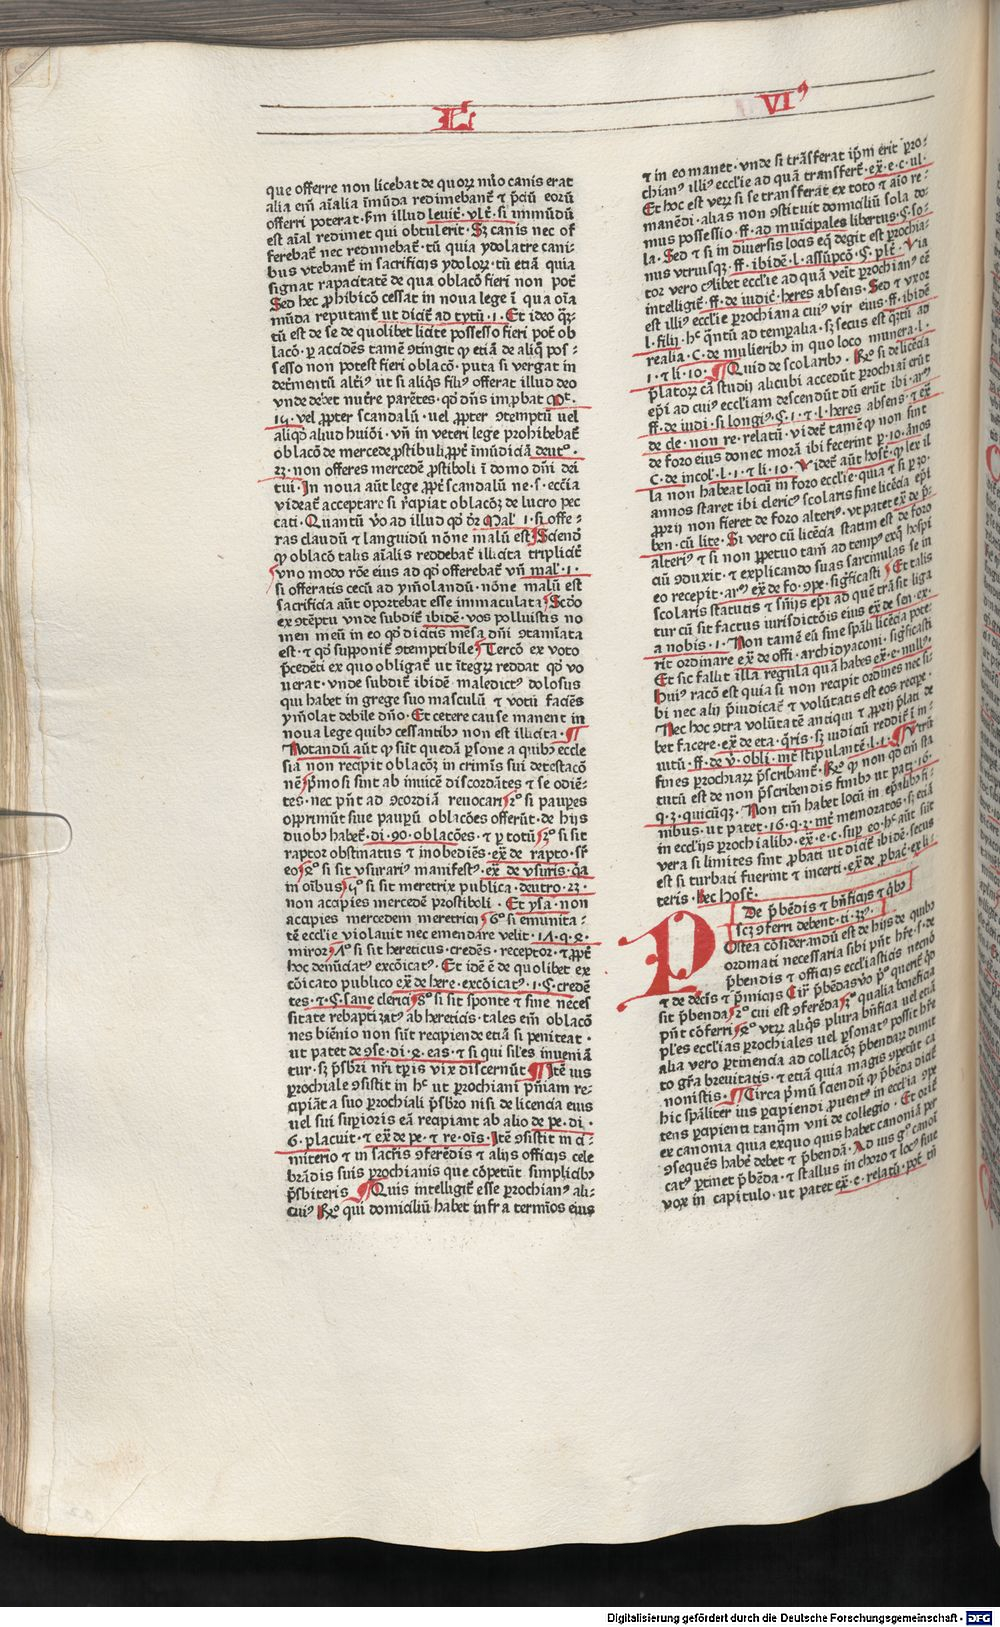 L
VI⁹
que offerre non licebat de quoꝝ nũo canis erat
alia eñ aĩalia ĩmũda redimebant̃ ⁊ p̃ciũ eorũ
offerri poterat· s̃m illud leuit̃· vlt̃· si immũdũ
est aĩal redimet qui obtulerit· Sꝫ canis nec of
ferebat̃ nec redimebat̃· tũ quia ydolatre cani⸗
bus vtebant̃ in sacrificijs ydoloꝝ· tũ etiã quia
signat rapacitatẽ de qua oblacõ fieri non pot̃
Sed hec ꝓhibicõ cessat in noua lege ĩ qua oĩa
mũda reputant̃ ut dicit̃ ad tytũ·1· Et ideo q̃ꝫ⸗
tũ est de se de quolibet licite possesso fieri pot̃ ob
lacõ· ꝑ accidẽs tamẽ ꝯtingit ꝙ etiã de aliq̃ pos⸗
sesso non potest fieri oblacõ· puta si vergat in
det̃mentũ alt̃i⁹ ut si aliq̃s fili⁹ offerat illud deo
vnde debet nut̃re parẽtes· qð dñs imꝓbat Mt̃·
15· vel ꝓpter scandalũ· uel ꝓpter ꝯtemptũ uel
aliqð aliud huiõi· vñ in veteri lege prohibebat̃
oblacõ de mercede ꝓstibuli ꝓpt̃ ĩmũdiciã deut°·
23· non offeres mercedẽ ꝓstiboli ĩ domo dñi dei
tui· In noua aũt lege ꝓpt̃ scandalũ ne·s·ecc̃ia
videat̃ acceptare si r̃cipiat oblacõꝫ de lucro pec
cati· Quantũ v̊o ad illud qð dr̃ Mal̃·1· si offe⸗
ras claudũ ⁊ languidũ nõne malũ est Sciend̃
ꝙ oblacõ talis aĩalis reddebat̃ illicita triplicit̃
vno modo rõe eius ad qð offerebat̃ vñ mal̃·1·
si offeratis cecũ ad ym̃olandũ· nõne malũ est
sacrificia aũt oportebat esse immaculata Scdo
ex ꝯtẽptu vnde subdit̃ ibidẽ·vos polluistis no
men meũ in eo qð dicitis mẽsa dñi ꝯtamĩata
est· ⁊ qð suppõnit̃ ꝯtemptibile Tercõ ex voto
p̃cedẽti ex quo obligat̃ ut ĩtegꝝ reddat qð vo
uerat· vnde subdit̃ ibidẽ maledict⁹ dolosus
qui habet in grege suo masculũ ⁊ votũ faciẽs
ym̃olat debile dño· Et cetere cause manent in
noua lege quibꝫ cessantibꝫ non est illicita·
Notandũ aũt ꝙ sũt quedã ꝑsone a quibꝫ eccle
siã non recipit oblacõꝫ in crimĩs sui detestacõ
nẽ p̃mo si sint ab inuicẽ discordãtes ⁊ se odiẽ⸗
tes· nec pñt ad ꝯcordiã reuocari 2° si pauꝑes
opp̃rimũt siue pauꝑũ oblacões offerũt· de hijs
duobꝫ habet̃·di·90·oblacões· ⁊ ꝑ totũ 3° si sit
raptoꝛ obstinatus ⁊ inobediẽs·ex̃ de rapto·sr̃
eo 4° si sit vsurari⁹ manifest⁹· ex̃ de vsuris·q̃a
in oĩbus 5° si sit meretrix publica·deutro·23·
non accipies mercedẽ prostiboli· Et ysa·non
accipies mercedem meretricis 6° si emunita⸗
tẽ ecclie violauit nec emendare velit·17·q·4·
miroꝛ 7° si sit hereticus·credẽs·receptor·⁊ ꝓpt̃
hoc denũciat⁹ excõicat⁹· Et idẽ ẽ de quolibet ex
cõicato publico ex̃ de here·excõicat⁹·1·§ credẽ
tes·⁊·§ sane clerici 8° si sit sponte ⁊ sine neces
sitate rebaptizat⁹ ab hereticis·tales eñ oblacõ
nes biẽnio non sũt recipiende etiã si peniteat·
ut patet de ꝯse·di·4·eas·⁊ si qui siles inueniã
tur·sꝫ p̃sbri nr̃i tꝑis vix discernũt Itẽ ius
perochiale ꝯsistit in h̃ ut ꝑochiani p̃niam re⸗
cipiãt a suo ꝑochiali p̃sbro nisi de licencia eius
uel sui suꝑioris eã recipiant ab alio de pe·di·
6·placuit·⁊ ex̃ de pe·⁊ re·oĩs· Itẽ ꝯsistit in ci⸗
miterio ⁊ in sacris ꝯferẽdis ⁊ alijs officijs cele
brãdis suis ꝑochianis que cõpetũt simplicibꝫ
p̃sbiteris Quis intelligit̃ esse ꝑochian⁹ ali⸗
cui⁹ R̃o qui domiciliũ habet infra termĩos eius
⁊ in eo manet· vnde si trãsferat ip̃m erit ꝑro⸗
chian⁹ illi⁹ ecclie ad quã transfert̃·ex̃·e·c·ul·
Et hoc est veꝝ si se transferat ex toto ⁊ aĩo re⸗
manẽdi·alias non ꝯstituit domiciliũ sola do⸗
mus possessio·ff·ad muĩcipales libertus·§·so⸗
la· Sed ⁊ si in diuersis locis eq̃ degit est ꝑrochia⸗
nus vtriusqꝫ·ff·ibidẽ·l·assũpcõ·§·plr̃· Via
tor vero c̃libet ecclie ad quã veĩt ꝑrochian⁹ eẽ
intelligit̃·ff·de iudic̃·heres absens· Sed ⁊ vxor
est illi⁹ ecclie ꝑrochiana cui⁹ vir eius·ff·ibidẽ
l·filij·h̃ q̃ntũ ad temꝑalia·sꝫ secus est q̃ꝫtũ ad
realia·C·de mulieribꝫ in quo loco munera·l·
1·⁊ li·10· Quid de scolaribꝫ· R̃o si de licẽcia
p̃latoꝝ cã studij alicubi accedũt ꝑrochiañ erũt
ep̃i ad cui⁹ eccliam descendũt dũ erũt ibi·ar⁹
ff·de iudi·si longi⁹·§·1·⁊·l·heres absens·⁊ ex̃
de cle·non re·relatũ·videt̃ tamẽ ꝙ non sint
de foro eius donec morã ibi fecerint ꝑ·10·ãnos
C·de incol̃·l·1·⁊ li·10· Videt̃ aũt host̃·ꝙ lex il
la non habeat locũ in foro ecclie·quia ⁊ si ꝑ 20·
annos staret ibi cleric⁹ scolaris sine licẽcia ep̃i
ꝓprij non fieret de foro alteri⁹· ut patet ex̃ de p̃⸗
ben·cũ lite· Si vero cũ licẽcia statim est de foro
alteri⁹ ⁊ si non ꝑpetuo tam̃ ad temp⁹ exq̃ hospi
ciũ ꝯduxit·⁊ explicando suas sarcinulas se in
eo recepit·ar⁹ ex̃ de fo·ꝯpe·sig̃ficasti Et talis
scolaris statutis ⁊ sñijs ep̃i ad quẽ trãsit liga
tur cũ sit factus iurisdictõis eius ex̃ de sen·ex·
a nobis·1· Non tamẽ eũ sine sp̃ali licẽcia pote⸗
rit ordinare ex̃ de offi·archidyaconi·sig̃ficasti
Et sic fallit illa regula quã habes ex̃·e·null⁹·
Hui⁹ racõ est quia si non recipit ordines nec si⸗
bi nec alij p̃iudicat̃ ⁊ volũtatis est eos recipe·
Nec hoc ꝯtra volũtatẽ antiqui ⁊ ꝓprij p̃lati de
bet facere·ex̃ de eta·q̃ris·sꝫ iudiciũ reddit̃ ĩ in⸗
uitũ·ff·de v̊·obli·mt̃·stipulantẽ·l·1· Vtrũ
fines ꝑrochiaꝝ p̃scribant̃· R̃o ꝙ non qð eñ sta
tutũ est de non p̃scribendis finibꝫ ut pati·16·
q·3·quicũqꝫ· Non tm̃ habet locũ in ep̃alibꝫ fi⸗
nibus·ut patet·16·q·3·mt̃ memoratos·sꝫ etiã
in ecclijs ꝑrochialibꝫ·ex̃·e·c·suꝑ eo·h̃ aũt sũt
vera si limites sint ꝓbati ut dicit̃ ibidẽ·secus
est si turbati fuerint ⁊ incerti·ex̃ de ꝓbac̃·ex li⸗
teris· hec host̃·
De p̃bẽdis ⁊ bñficijs ⁊ q̃bꝫ
scꝫ ꝯferri debent·ti·32·
Postea cõsiderandũ est de hijs de quibꝫ
ordinati necessaria sibi pñt hr̃e·s·de
p̃bendis ⁊ officijs eccliasticis necnõ
⁊ de decĩs ⁊ p̃micijs Cir̃ p̃bẽdas v̊o p̃° querit̃ qð
sit p̃benda 2° cui est ꝯferẽda 3° qualia beneficia
pñt cõferri 4° vtꝝ aliq̃s plura bñficia uel etiã
pl̃es ecclias ꝑrochiales uel ꝑsonat⁹ possit hr̃e
alia vero ꝑtinencia ad collacõꝫ p̃bendaꝝ dimit
to gr̃a breuitatis·⁊ etiã quia magis ꝯpetũt ca
nonistis· Circa p̃mũ sciendũ ꝙ p̃bẽda dicit̃
hic sp̃aliter ius ꝑcipiendi ꝓuent⁹ in ecclia ꝯpe
tens ꝑcipienti tanq̃m vni de collegio· Et orit̃
ex canonia quia exquo quis habet canoniã ꝑꝛ
ꝯsequẽs habẽ debet ⁊ p̃bendã· Ad ius g° canoĩ
cat⁹ ꝑtinet p̃bẽda·⁊ stallus in choro ⁊ loc⁹ siue
vox in capitulo·ut patet ex̃·e·relatũ·pot̃ tñ
Digitalisierung gefördert durch die Deutsche Forschungsgemeinschaft · DFG